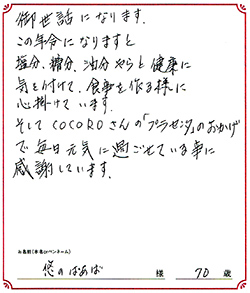 御世話になります。
この年令になりますと
塩分、糖分、油分やらと健康に
気を付けて、食事を作る様に
心掛けています。
そしてCOCOROさんの「プラセンタ」のおかげ
で毎日元気に過ごせている事に
感謝しています。
お名前(本名orペンネーム)
悠のばあば 様 70 歳